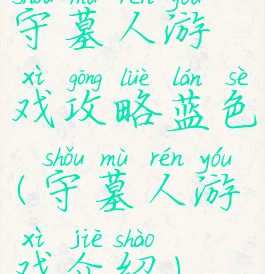 shǒu mù rén yóu
守墓人游
xì gōng lüè lán sè
戏攻略蓝色
shǒu mù rén yóu
(守墓人游
xì jiè shào
戏介绍)